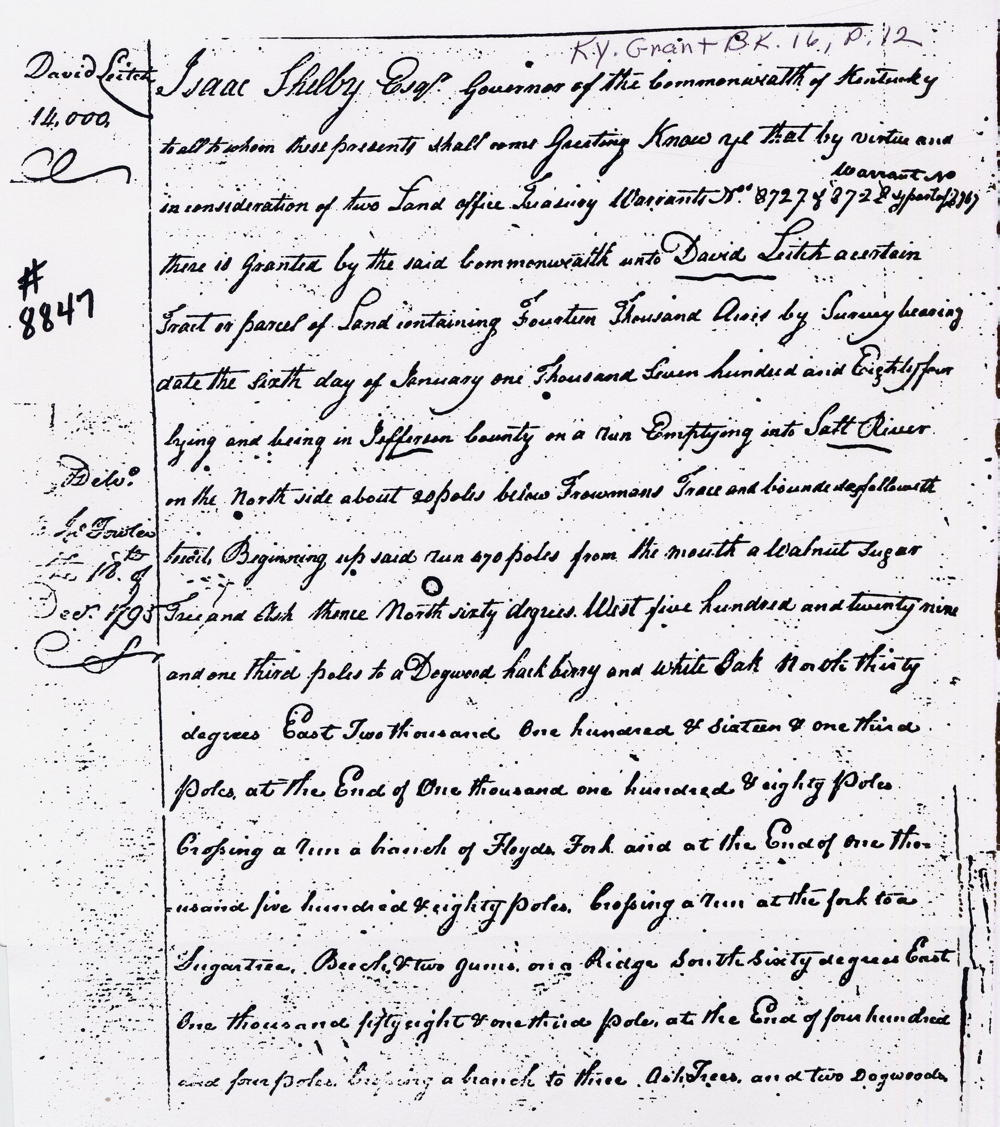 KY. Grant BK. 16, P. 12
David Leitch
14,000
#
8847
Delv.º
Jnº Fowler
the 18.th of
Decr. 1795
Isaac Shelby Esqr. Governor of the Commonwealth of Kentucky
to all to whom these presents shall come Greeting Know ye that by virtue and
Warrant No
in consideration of two Land office Treasury Warrants Nos. 8727 & 8728 & part of
there is Granted by the said Commonwealth unto David Leitch a certain
Tract or parcel of Land containing Fourteen Thousand Acres by Survey bearing
date the sixth day of January one Thousand Seven hundred and Eighty four
lying and being in Jefferson County on a run Emptying into Salt River
on the North side about 20 poles below Frowmans Trace and bounded as followeth
towit, Beginning up said run 070 poles from the mouth a Walnut Sugar
Tree and Ash thence North sixty degrees West five hundred and twenty nine
and one third poles to a Dogwood hack berry and white Oak North thirty
degrees East Two thousand One hundred & sixteen & one third
Poles, at the End of One thousand one hundred & eighty Poles
Crossing a run a branch of Floyds Fork and at the End of One tho=
=usand five hundred & eighty Poles, Crossing a run at the fork to a
Sugartree, Beech, & two Gums, on a Ridge South Sixty degrees East
One thousand fifty eight & one third Pole, at the End of four hundred
and four poles Crossing a branch to three Ash Trees, and two Dogwoods,